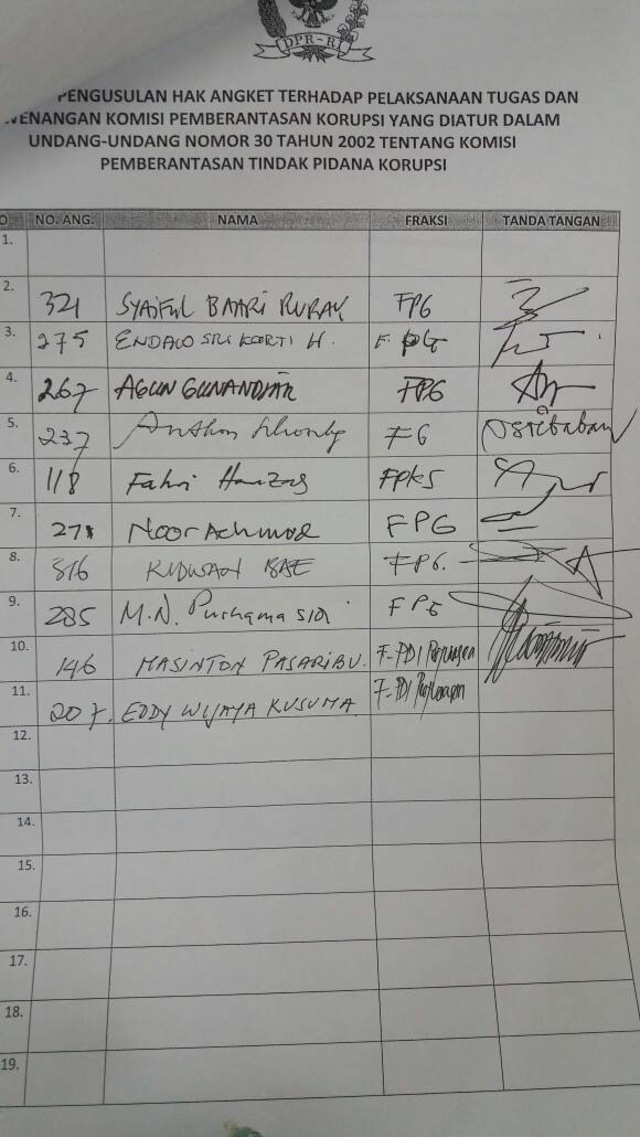 DPR-RI
PENGUSULAN HAK ANGKET TERHADAP PELAKSANAAN TUGAS DAN
WENANGAN KOMISI PEMBERANTASAN KORUPSI YANG DIATUR DALAM
UNDANG-UNDANG NOMOR 30 TAHUN 2002 TENTANG KOMISI
PEMBERANTASAN TINDAK PIDANA KORUPSI
O NO. ANG. NAMA FRAKSI TANDA TANGAN
1.
2. 321 SYAIFUL BAHRI RURAY FPG
3. 275 ENDANG SRI KARTI H. F. PG
4. 267 AGUN GUNANDJAR FPG
5. 237 Anthon FG
6. 118 Fahri Hamzah FPKS
7. 271 Noor Achmad FPG
8. 316 RIDWAN BAE FPG.
9. 285 M.N. Purnamasidi FPG
10. 146 MASINTON PASARIBU. F-PDI Perjuangan
11. 207. EDDY WIJAYA KUSUMA F-PDI Perjuangan
12.
13.
14.
15.
16.
17.
18.
19.